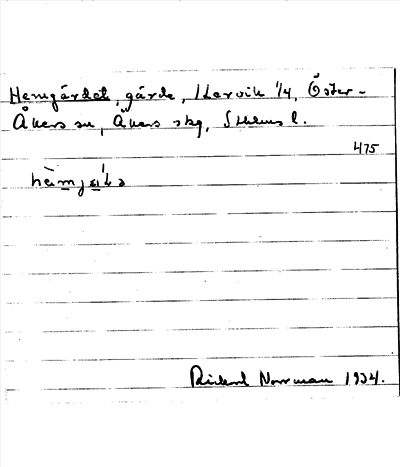 Hemgärdet, gärde, Isarvik 1/4, Öster-
Åkers sn, Åkers skg, Sthlms l.
475
Rickard Norrman 1934.